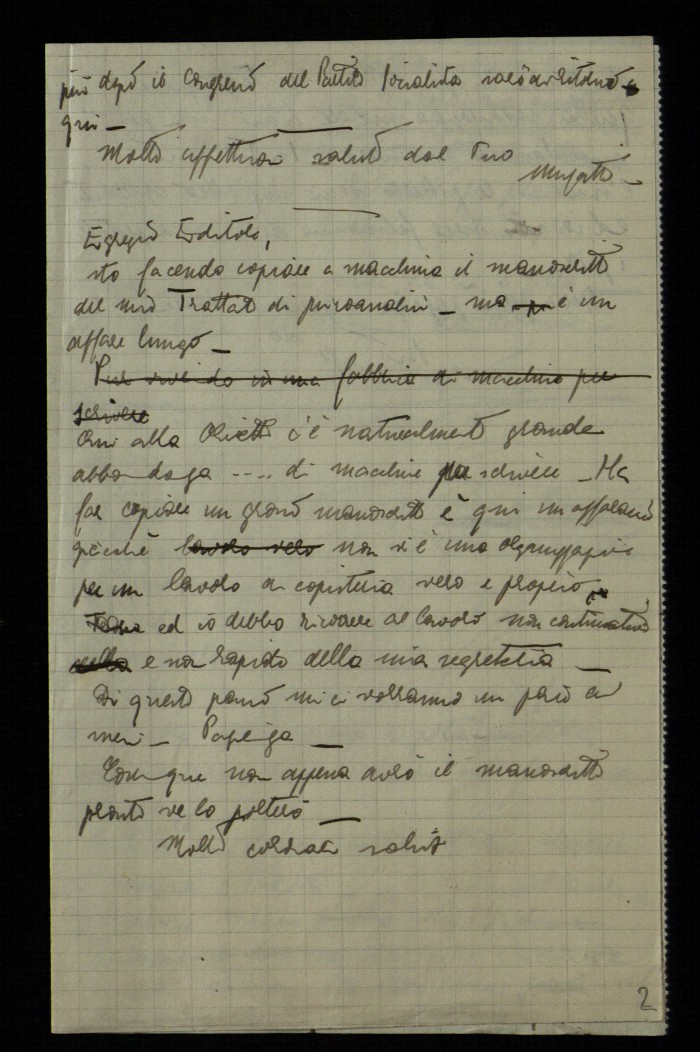 però dopo il congresso del Partito Socialista sarò di ritorno
qui —
Molti affettuosi saluti dal Tuo
Musatti
Egregio Editore,
sto facendo copiare a macchina il manoscritto
del mio Trattato di psicoanalisi — ma è un
affare lungo —
Pur vivendo in una fabbrica di macchine per
scrivere
Qui alla Olivetti c'è naturalmente grande
abbondanza .... di macchine per scrivere — Ma
far copiare un grosso manoscritto è qui un affare
perché lavoro vero non vi è una organizzazione
per un lavoro di copisteria vero e proprio,
ed io debbo ricorrere al lavoro non continuativo
della e non rapido della mia segretaria —
Di questo passo mi ci vorranno un paio di
mesi — Pazienza —
Comunque non appena avrò il manoscritto
pronto ve lo porterò —
Molti cordiali saluti
2